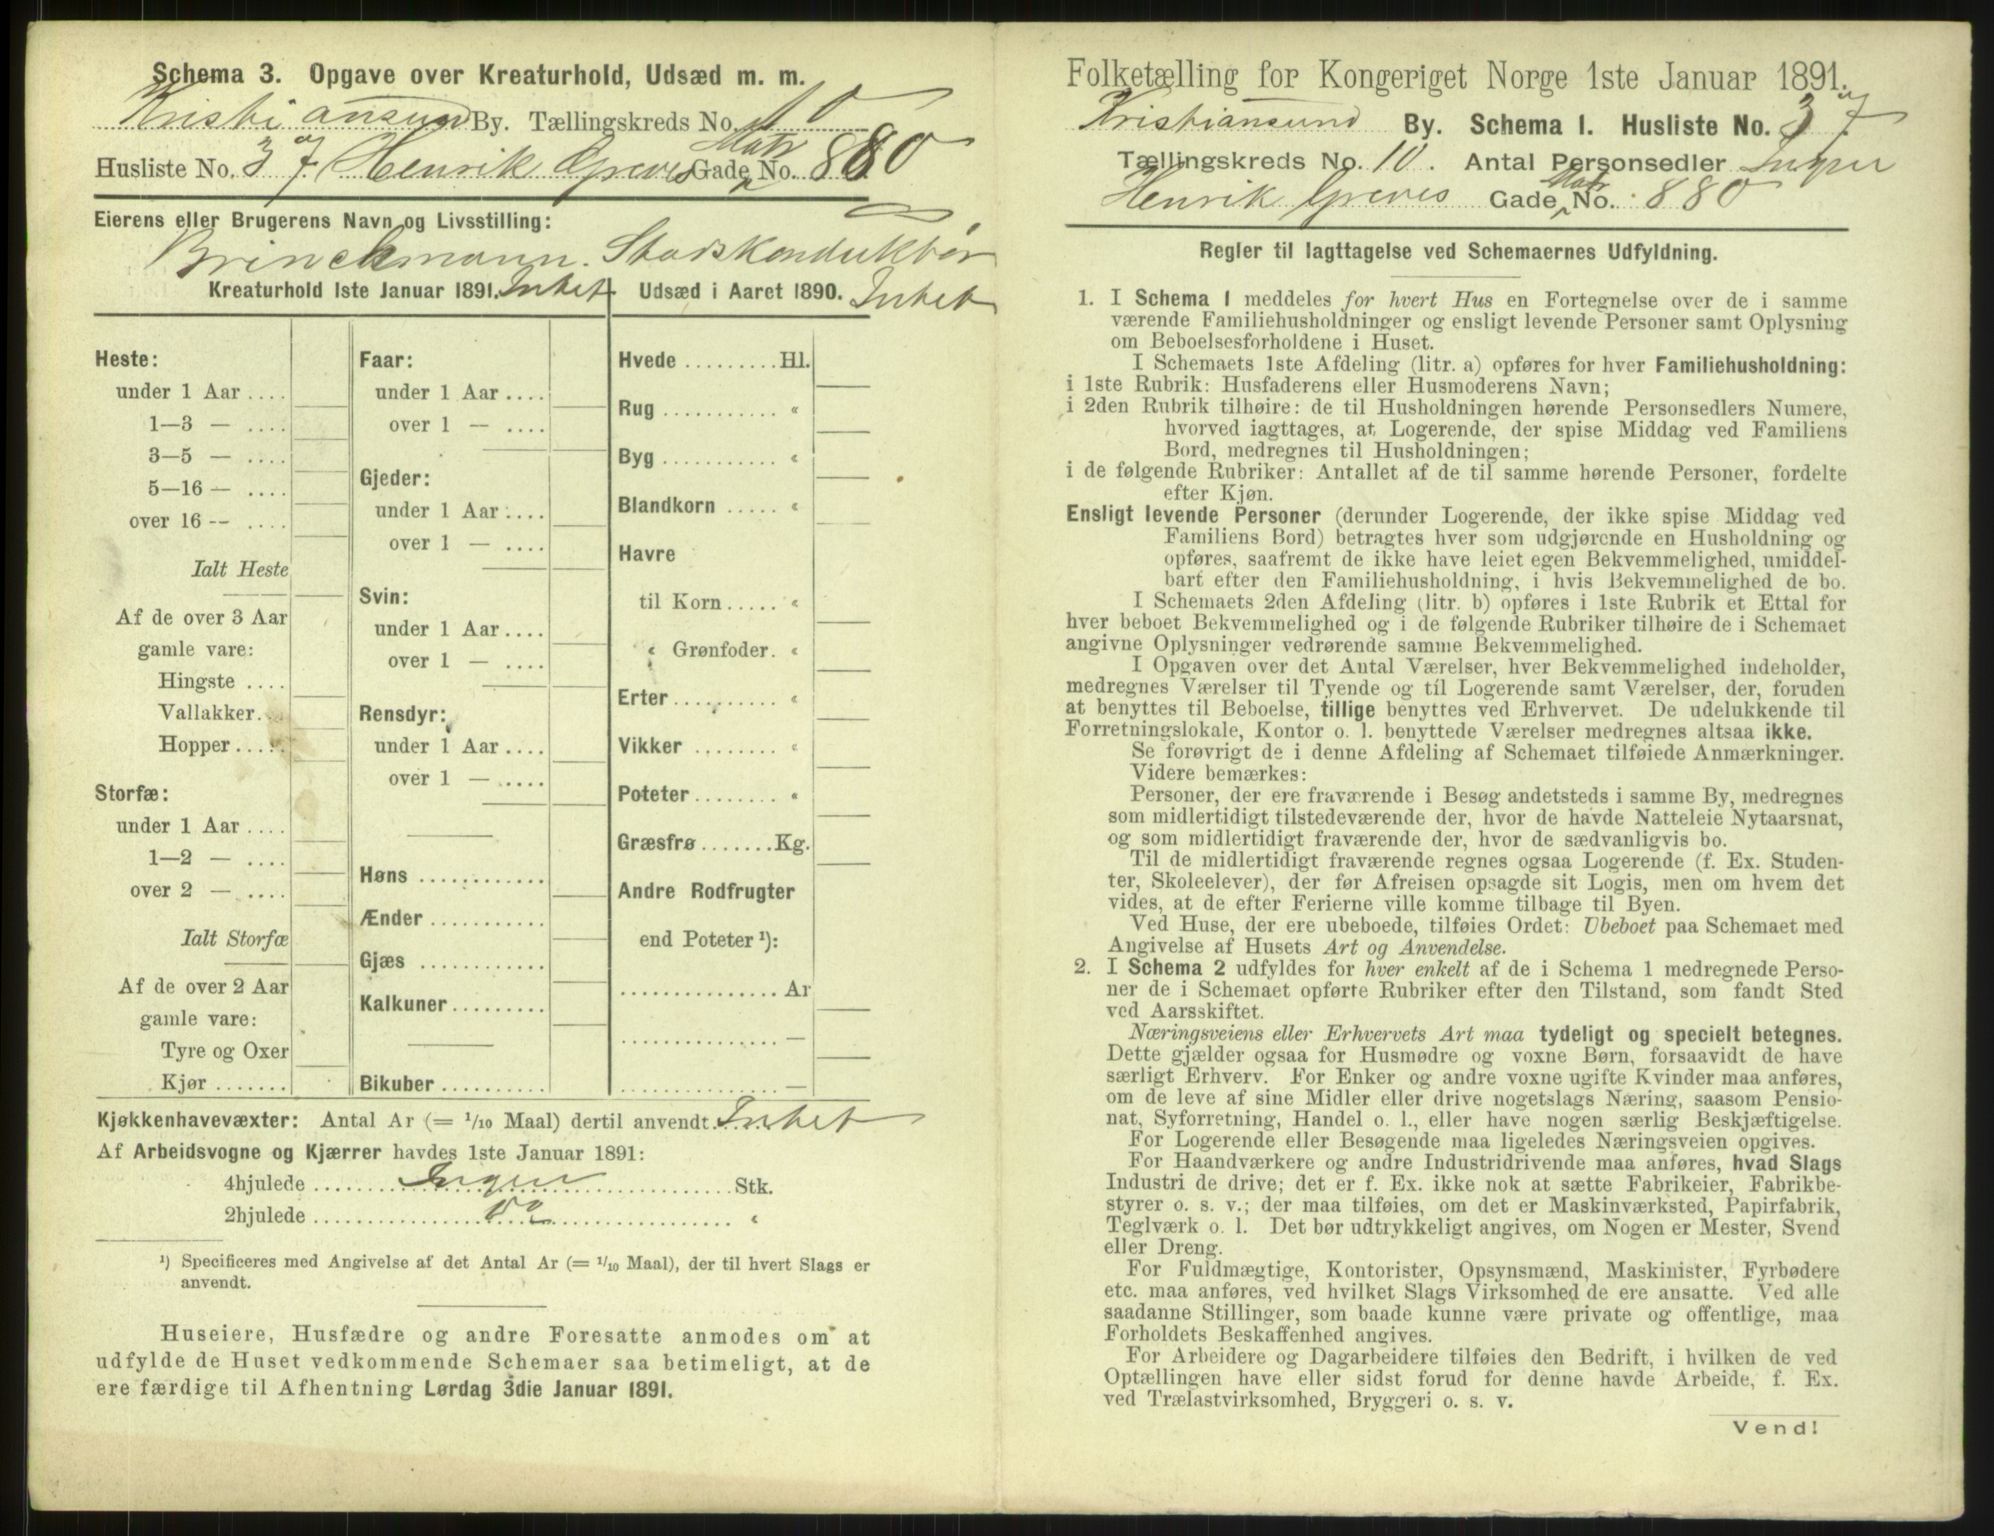 Schema 3. Opgave over Kreaturhold, Udsæd m. m.
Kristiansund By. Tællingskreds No. 10
Husliste No. 37 Henrik Greves Gade Matr No. 880
Eierens eller Brugerens Navn og Livsstilling:
Brinckmann. Stadskonduktør
Kreaturhold 1ste Januar 1891. Intet
Udsæd i Aaret 1890. Intet
Heste:
under 1 Aar ....
1—3 — ....
3—5 — ....
5—16 — ....
over 16 -- ....
Ialt Heste
Af de over 3 Aar
gamle vare:
Hingste ....
Vallakker....
Hopper .....
Storfæ:
under 1 Aar ....
1—2 — ....
over 2 — ....
Ialt Storfæ
Af de over 2 Aar
gamle vare:
Tyre og Oxer
Kjør .......
Faar:
under 1 Aar ....
over 1 — ....
Gjeder:
under 1 Aar ....
over 1 — ....
Svin:
under 1 Aar ....
over 1 — ....
Rensdyr:
under 1 Aar ....
over 1 — ....
Høns ............
Ænder ...........
Gjæs ............
Kalkuner.........
Bikuber ..........
Hvede ......... Hl.
Rug ........... «
Byg ........... «
Blandkorn ..... «
Havre
til Korn..... «
« Grønfoder. «
Erter.......... «
Vikker ........ «
Poteter........ «
Græsfrø....... Kg.
Andre Rodfrugter
end Poteter ¹):
............... Ar
............... —
............... —
Kjøkkenhavevæxter: Antal Ar (= 1/10 Maal) dertil anvendt. Intet
Af Arbeidsvogne og Kjærrer havdes 1ste Januar 1891:
4hjulede ........ Ingen ........ Stk.
2hjulede ........ do ........ «
¹) Specificeres med Angivelse af det Antal Ar (= 1/10 Maal), der til hvert Slags er
anvendt.
Huseiere, Husfædre og andre Foresatte anmodes om at
udfylde de Huset vedkommende Schemaer saa betimeligt, at de
ere færdige til Afhentning Lørdag 3die Januar 1891.
Folketælling for Kongeriget Norge 1ste Januar 1891.
Kristiansund By. Schema 1. Husliste No. 37
Tællingskreds No. 10. Antal Personsedler Ingen
Henrik Greves Gade Matr No. 880
Regler til Iagttagelse ved Schemaernes Udfyldning.
1. I Schema 1 meddeles for hvert Hus en Fortegnelse over de i samme
værende Familiehusholdninger og ensligt levende Personer samt Oplysning
om Beboelsesforholdene i Huset.
I Schemaets 1ste Afdeling (litr. a) opføres for hver Familiehusholdning:
i 1ste Rubrik: Husfaderens eller Husmoderens Navn;
i 2den Rubrik tilhøire: de til Husholdningen hørende Personsedlers Numere,
hvorved iagttages, at Logerende, der spise Middag ved Familiens
Bord, medregnes til Husholdningen;
i de følgende Rubriker: Antallet af de til samme hørende Personer, fordelte
efter Kjøn.
Ensligt levende Personer (derunder Logerende, der ikke spise Middag ved
Familiens Bord) betragtes hver som udgjørende en Husholdning og
opføres, saafremt de ikke have leiet egen Bekvemmelighed, umiddel-
bart efter den Familiehusholdning, i hvis Bekvemmelighed de bo.
I Schemaets 2den Afdeling (litr. b) opføres i 1ste Rubrik et Ettal for
hver beboet Bekvemmelighed og i de følgende Rubriker tilhøire de i Schemaet
angivne Oplysninger vedrørende samme Bekvemmelighed.
I Opgaven over det Antal Værelser, hver Bekvemmelighed indeholder,
medregnes Værelser til Tyende og til Logerende samt Værelser, der, foruden
at benyttes til Beboelse, tillige benyttes ved Erhvervet. De udelukkende til
Forretningslokale, Kontor o. l. benyttede Værelser medregnes altsaa ikke.
Se forøvrigt de i denne Afdeling af Schemaet tilføiede Anmærkninger.
Videre bemærkes:
Personer, der ere fraværende i Besøg andetsteds i samme By, medregnes
som midlertidigt tilstedeværende der, hvor de havde Natteleie Nytaarsnat,
og som midlertidigt fraværende der, hvor de sædvanligvis bo.
Til de midlertidigt fraværende regnes ogsaa Logerende (f. Ex. Studen-
ter, Skoleelever), der før Afreisen opsagde sit Logis, men om hvem det
vides, at de efter Ferierne ville komme tilbage til Byen.
Ved Huse, der ere ubeboede, tilføies Ordet: Ubeboet paa Schemaet med
Angivelse af Husets Art og Anvendelse.
2. I Schema 2 udfyldes for hver enkelt af de i Schema 1 medregnede Perso-
ner de i Schemaet opførte Rubriker efter den Tilstand, som fandt Sted
ved Aarsskiftet.
Næringsveiens eller Erhvervets Art maa tydeligt og specielt betegnes.
Dette gjælder ogsaa for Husmødre og voxne Børn, forsaavidt de have
særligt Erhverv. For Enker og andre voxne ugifte Kvinder maa anføres,
om de leve af sine Midler eller drive nogetslags Næring, saasom Pensio-
nat, Syforretning, Handel o. l., eller have nogen særlig Beskjæftigelse.
For Logerende eller Besøgende maa ligeledes Næringsveien opgives.
For Haandværkere og andre Industridrivende maa anføres, hvad Slags
Industri de drive; det er f. Ex. ikke nok at sætte Fabrikeier, Fabrikbe-
styrer o. s. v.; der maa tilføies, om det er Maskinværksted, Papirfabrik,
Teglværk o. l. Det bør udtrykkeligt angives, om Nogen er Mester, Svend
eller Dreng.
For Fuldmægtige, Kontorister, Opsynsmænd, Maskinister, Fyrbødere
etc. maa anføres, ved hvilket Slags Virksomhed de ere ansatte. Ved alle
saadanne Stillinger, som baade kunne være private og offentlige, maa
Forholdets Beskaffenhed angives.
For Arbeidere og Dagarbeidere tilføies den Bedrift, i hvilken de ved
Optællingen have eller sidst forud for denne havde Arbeide, f. Ex.
ved Trælastvirksomhed, Bryggeri o. s. v.
Vend!